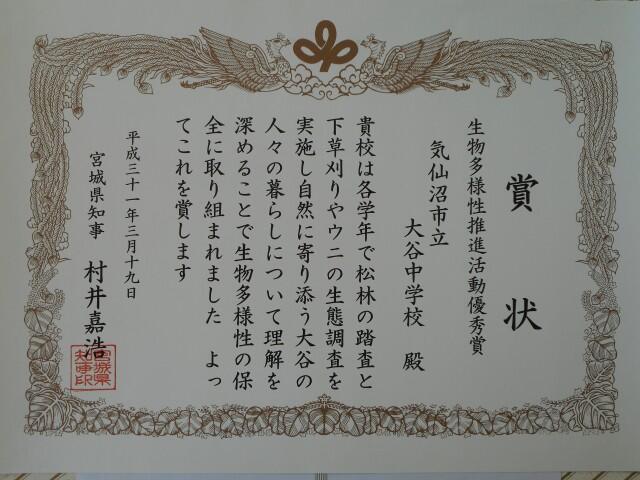 賞状
生物多様性推進活動優秀賞
気仙沼市立
大谷中学校 殿
貴校は各学年で松林の踏査と
下草刈りやウニの生態調査を
実施し自然に寄り添う大谷の
人々の暮らしについて理解を
深めることで生物多様性の保
全に取り組まれました よっ
てこれを賞します
平成三十一年三月十九日
宮城県知事 村井嘉浩
宮城県
知事印